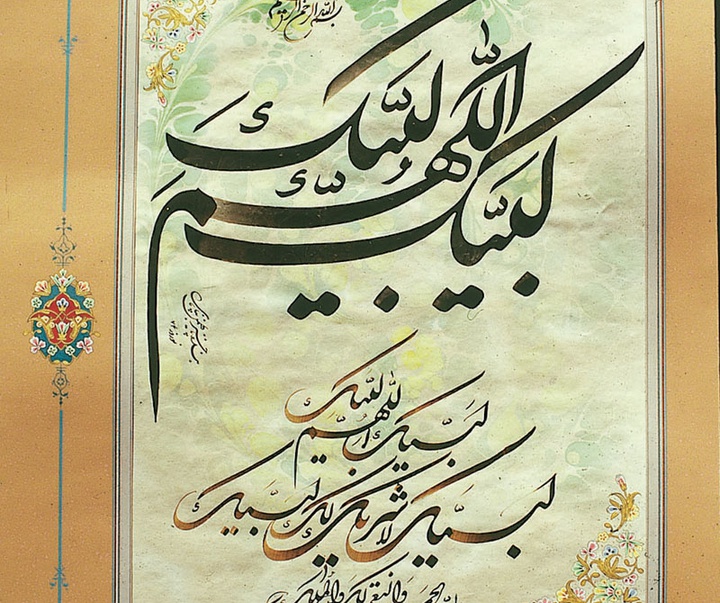 بسم الله الرحمن الرحیم
لبیک اللهم لبیک
لبیک اللهم لبیک
لبیک لا شریک لک لبیک
ان الحمد والنعمة لک والملک